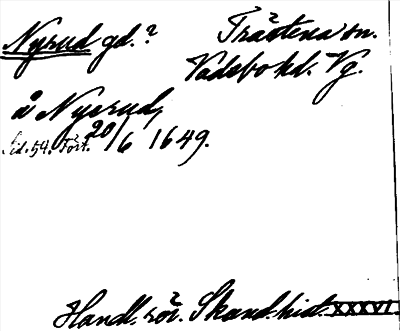 Nyrud gd.? Trästena sn.
Vadsbo hd. Vg.
å Nysrud,
Sid. 54. Fört. 20/6 1649.
Handl. rör. Skand. hist. XXXVI.